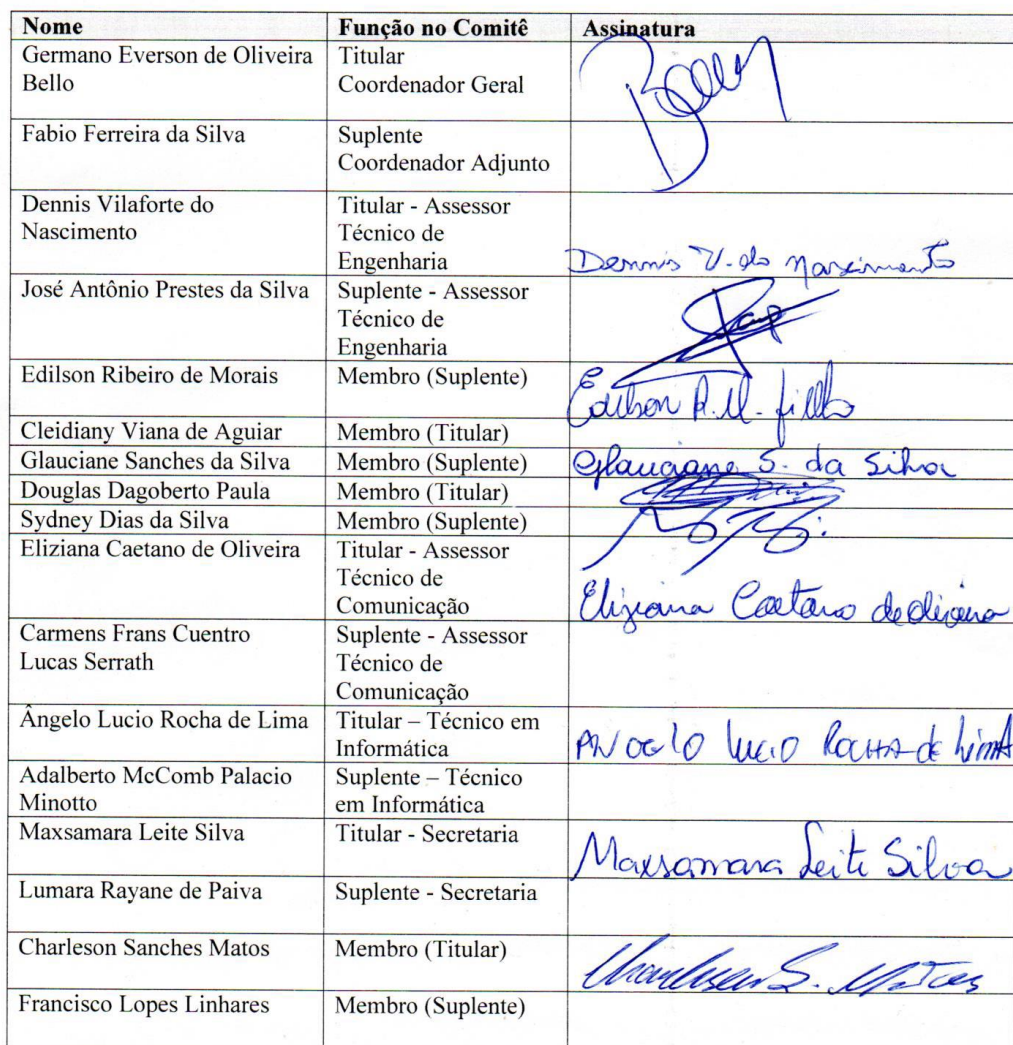 Nome Função no Comitê Assinatura
Germano Everson de Oliveira Titular
Bello Coordenador Geral
Fabio Ferreira da Silva Suplente
Coordenador Adjunto
Dennis Vilaforte do Titular - Assessor
Nascimento Técnico de
Engenharia Dennis V. do Nascimento
José Antônio Prestes da Silva Suplente - Assessor
Técnico de
Engenharia
Edilson Ribeiro de Morais Membro (Suplente) Edilson R. M. filho
Cleidiany Viana de Aguiar Membro (Titular)
Glauciane Sanches da Silva Membro (Suplente) Glauciane S. da Silva
Douglas Dagoberto Paula Membro (Titular)
Sydney Dias da Silva Membro (Suplente)
Eliziana Caetano de Oliveira Titular - Assessor
Técnico de
Comunicação Eliziana Caetano de oliveira
Carmens Frans Cuentro Suplente - Assessor
Lucas Serrath Técnico de
Comunicação
Ângelo Lucio Rocha de Lima Titular – Técnico em
Informática ANGELO Lucio ROCHA de LimA
Adalberto McComb Palacio Suplente – Técnico
Minotto em Informática
Maxsamara Leite Silva Titular - Secretaria Maxsamara Leite Silva
Lumara Rayane de Paiva Suplente - Secretaria
Charleson Sanches Matos Membro (Titular) Charleson S. Matos
Francisco Lopes Linhares Membro (Suplente)